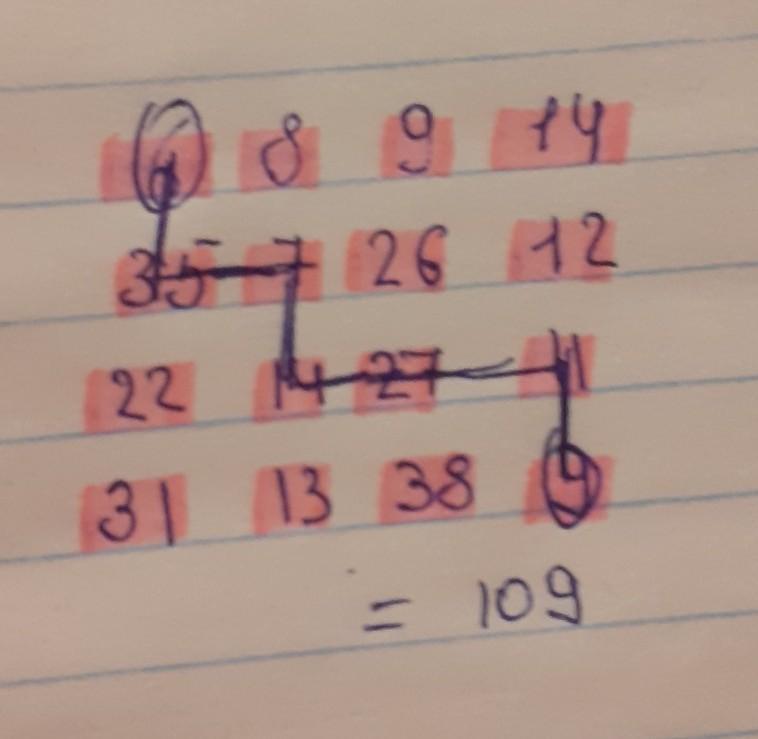 8 9 14
35 7 26 12
22 14 27 11
31 13 38 9
= 109